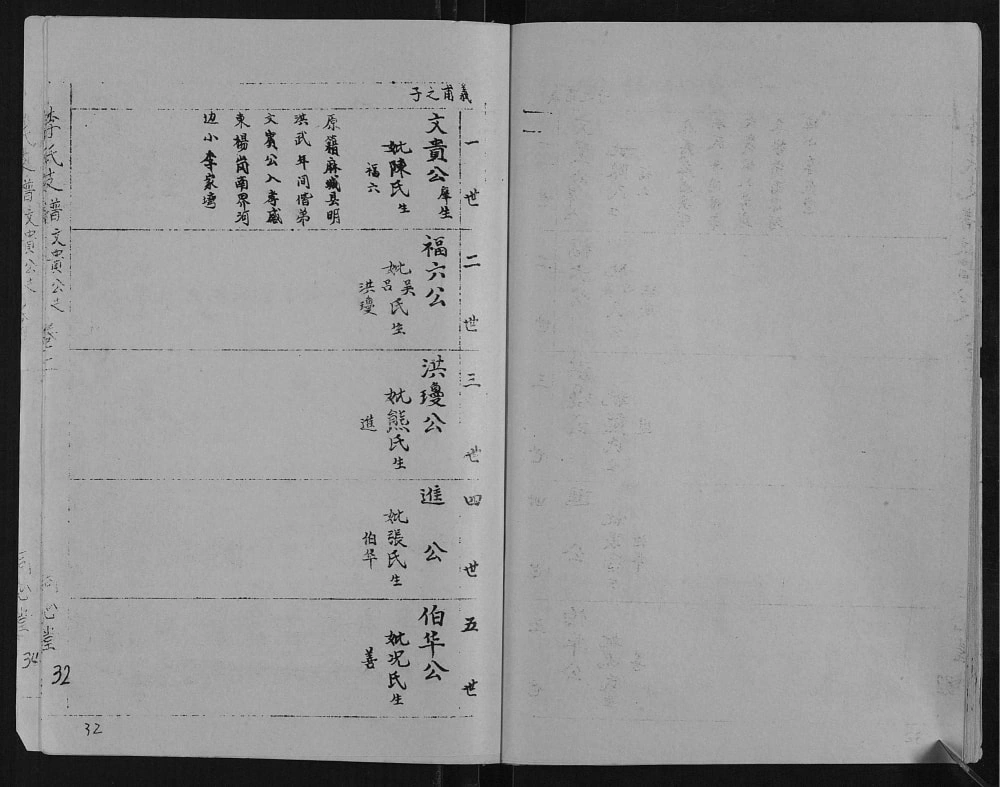 義甫之子
一世
文貴公 庠生
妣陳氏生
福六
原籍麻城县明
洪武年间偕弟
文賓公入孝感
東楊岗南界河
边小李家塆
二世
福六公
妣吴吕氏生
洪瓊
三世
洪瓊公
妣熊氏生
進
四世
進公
妣張氏生
伯华
五世
伯华公
妣况氏生
善
李氏支譜 文貴公支 卷二
同心堂
32
34
32